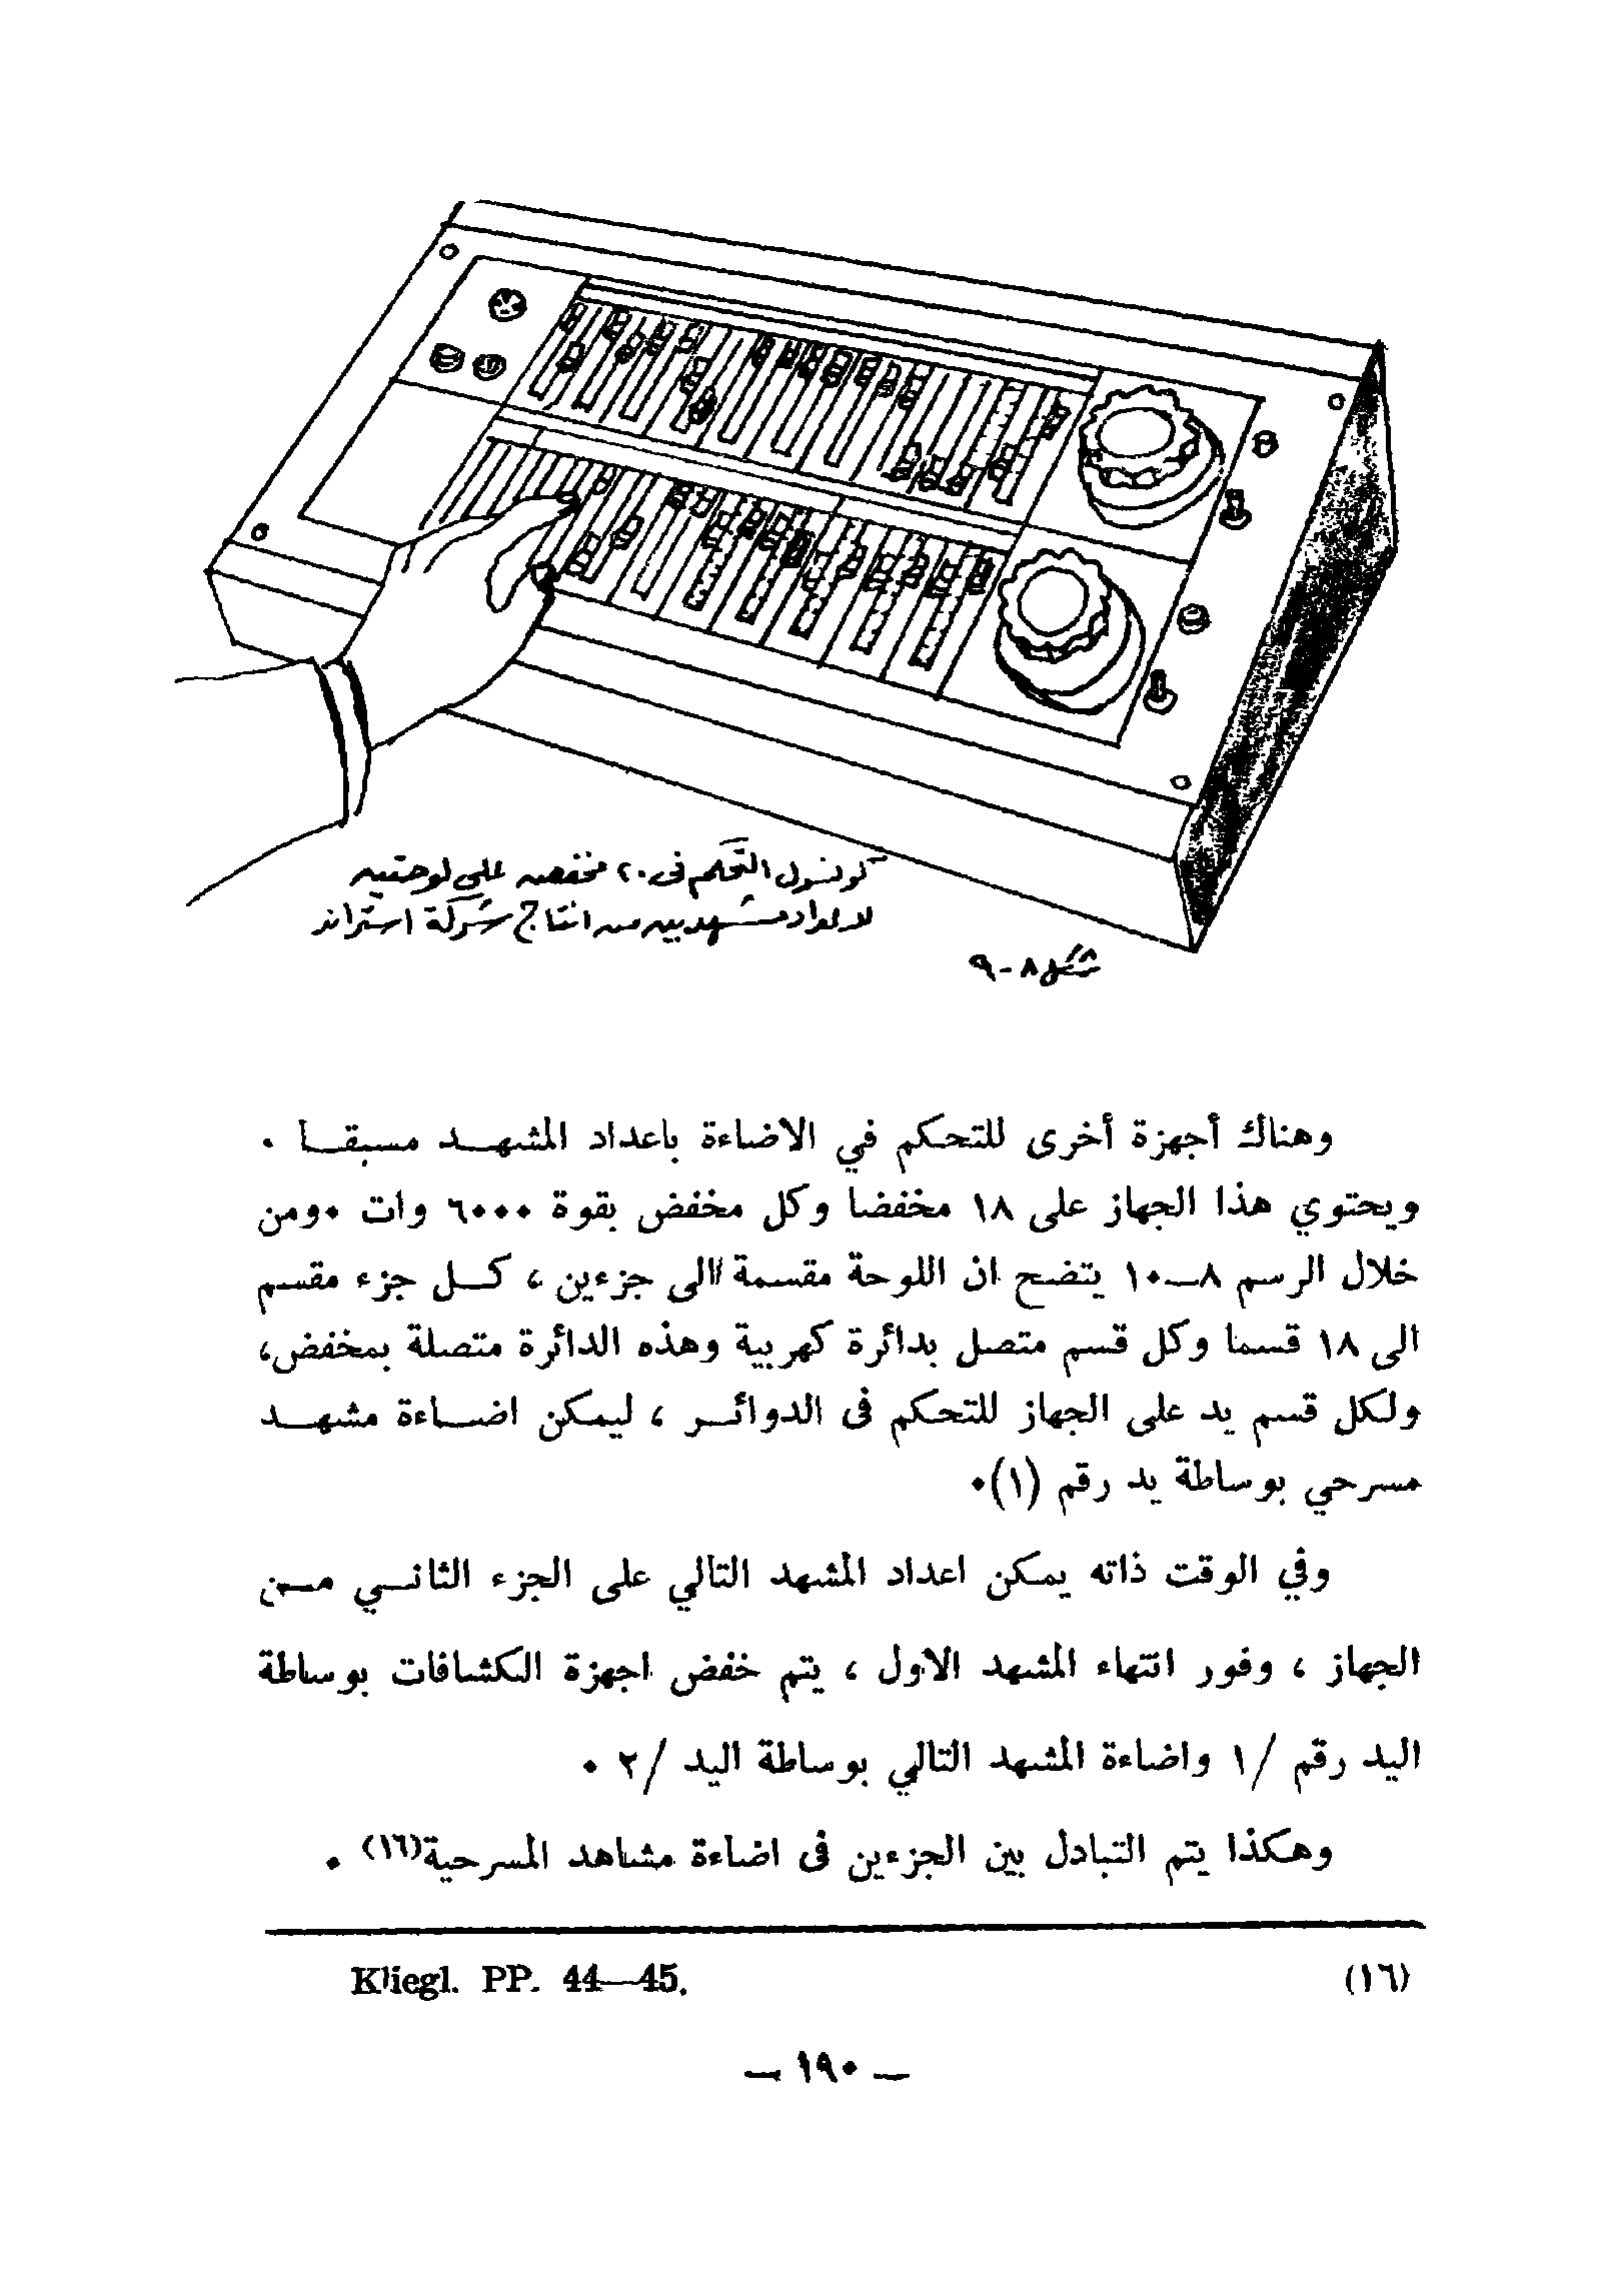 كونسول التحكم فى ٢٠ مخفض على لوحتين
لاعداد مشهدين من انتاج شركة استراند
شكل ٨-٩
وهناك أجهزة أخرى للتحكم في الاضاءة باعداد المشهـد مسبقـا .
ويحتوي هذا الجهاز على ١٨ مخفضا وكل مخفض بقوة ٦٠٠٠ وات .ومن
خلال الرسم ٨ــ١٠ يتضح ان اللوحة مقسمة الى جزءين ، كـل جزء مقسم
الى ١٨ قسما وكل قسم متصل بدائرة كهربية وهذه الدائرة متصلة بمخفض،
ولكل قسم يد على الجهاز للتحكم فى الدوائـر ، ليمكن اضـاءة مشهـد
مسرحي بوساطة يد رقم (١).
وفي الوقت ذاته يمكن اعداد المشهد التالي على الجزء الثانـي مـن
الجهاز ، وفور انتهاء المشهد الاول ، يتم خفض اجهزة الكشافات بوساطة
اليد رقم /١ واضاءة المشهد التالي بوساطة اليد /٢ .
وهكذا يتم التبادل بين الجزءين فى اضاءة مشاهد المسرحية(١٦) .
(١٦) Kliegl. PP. 44—45.
— ١٩٠ —